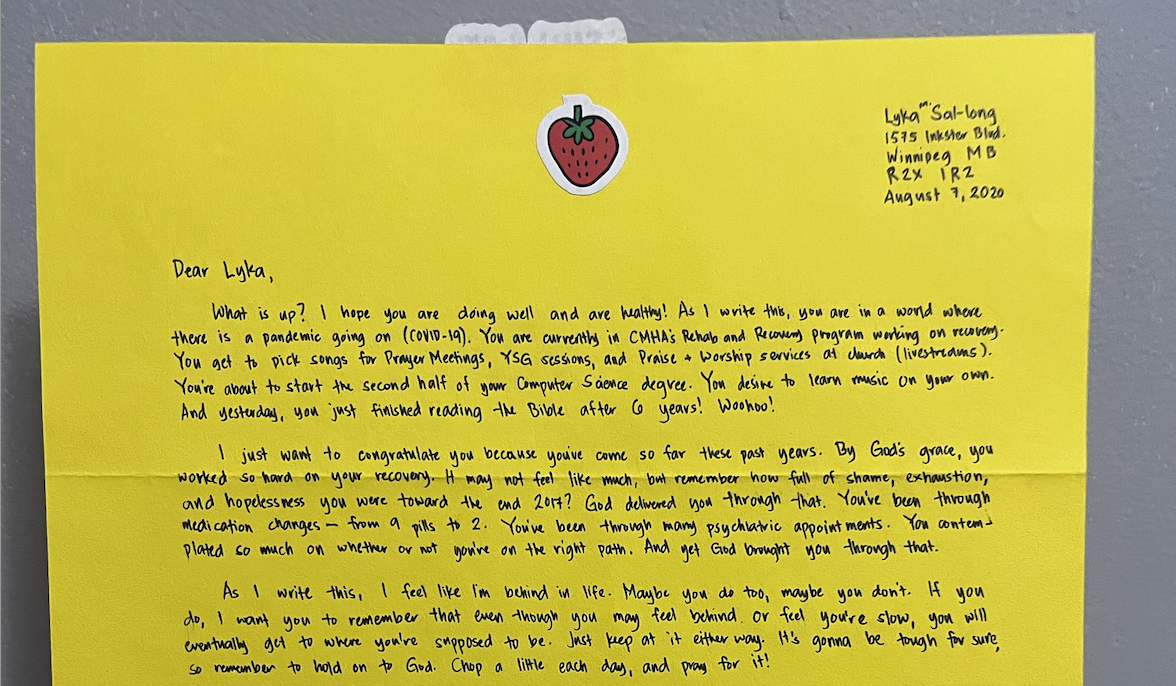 Lyka M. Sal-long
1575 Inkster Blvd.
Winnipeg MB
R2X 1R2
August 7, 2020
Dear Lyka,
What is up? I hope you are doing well and are healthy! As I write this, you are in a world where
there is a pandemic going on (COVID-19). You are currently in CMHA's Rehab and Recovery program working on recovery.
You get to pick songs for Prayer Meetings, YSG sessions, and Praise + Worship services at church (livestreams).
You're about to start the second half of your Computer Science degree. You desire to learn music on your own.
And yesterday, you just finished reading the Bible after 6 years! Woohoo!
I just want to congratulate you because you've come so far these past years. By God's grace, you
worked so hard on your recovery. It may not feel like much, but remember how full of shame, exhaustion,
and hopelessness you were toward the end 2017? God delivered you through that. You've been through
medication changes – from 9 pills to 2. You've been through many psychiatric appointments. You contem-
plated so much on whether or not you're on the right path. And yet God brought you through that.
As I write this, I feel like I'm behind in life. Maybe you do too, maybe you don't. If you
do, I want you to remember that even though you may feel behind or feel you're slow, you will
eventually get to where you're supposed to be. Just keep at it either way. It's gonna be tough for sure,
so remember to hold on to God. Chop a little each day, and pray for it!